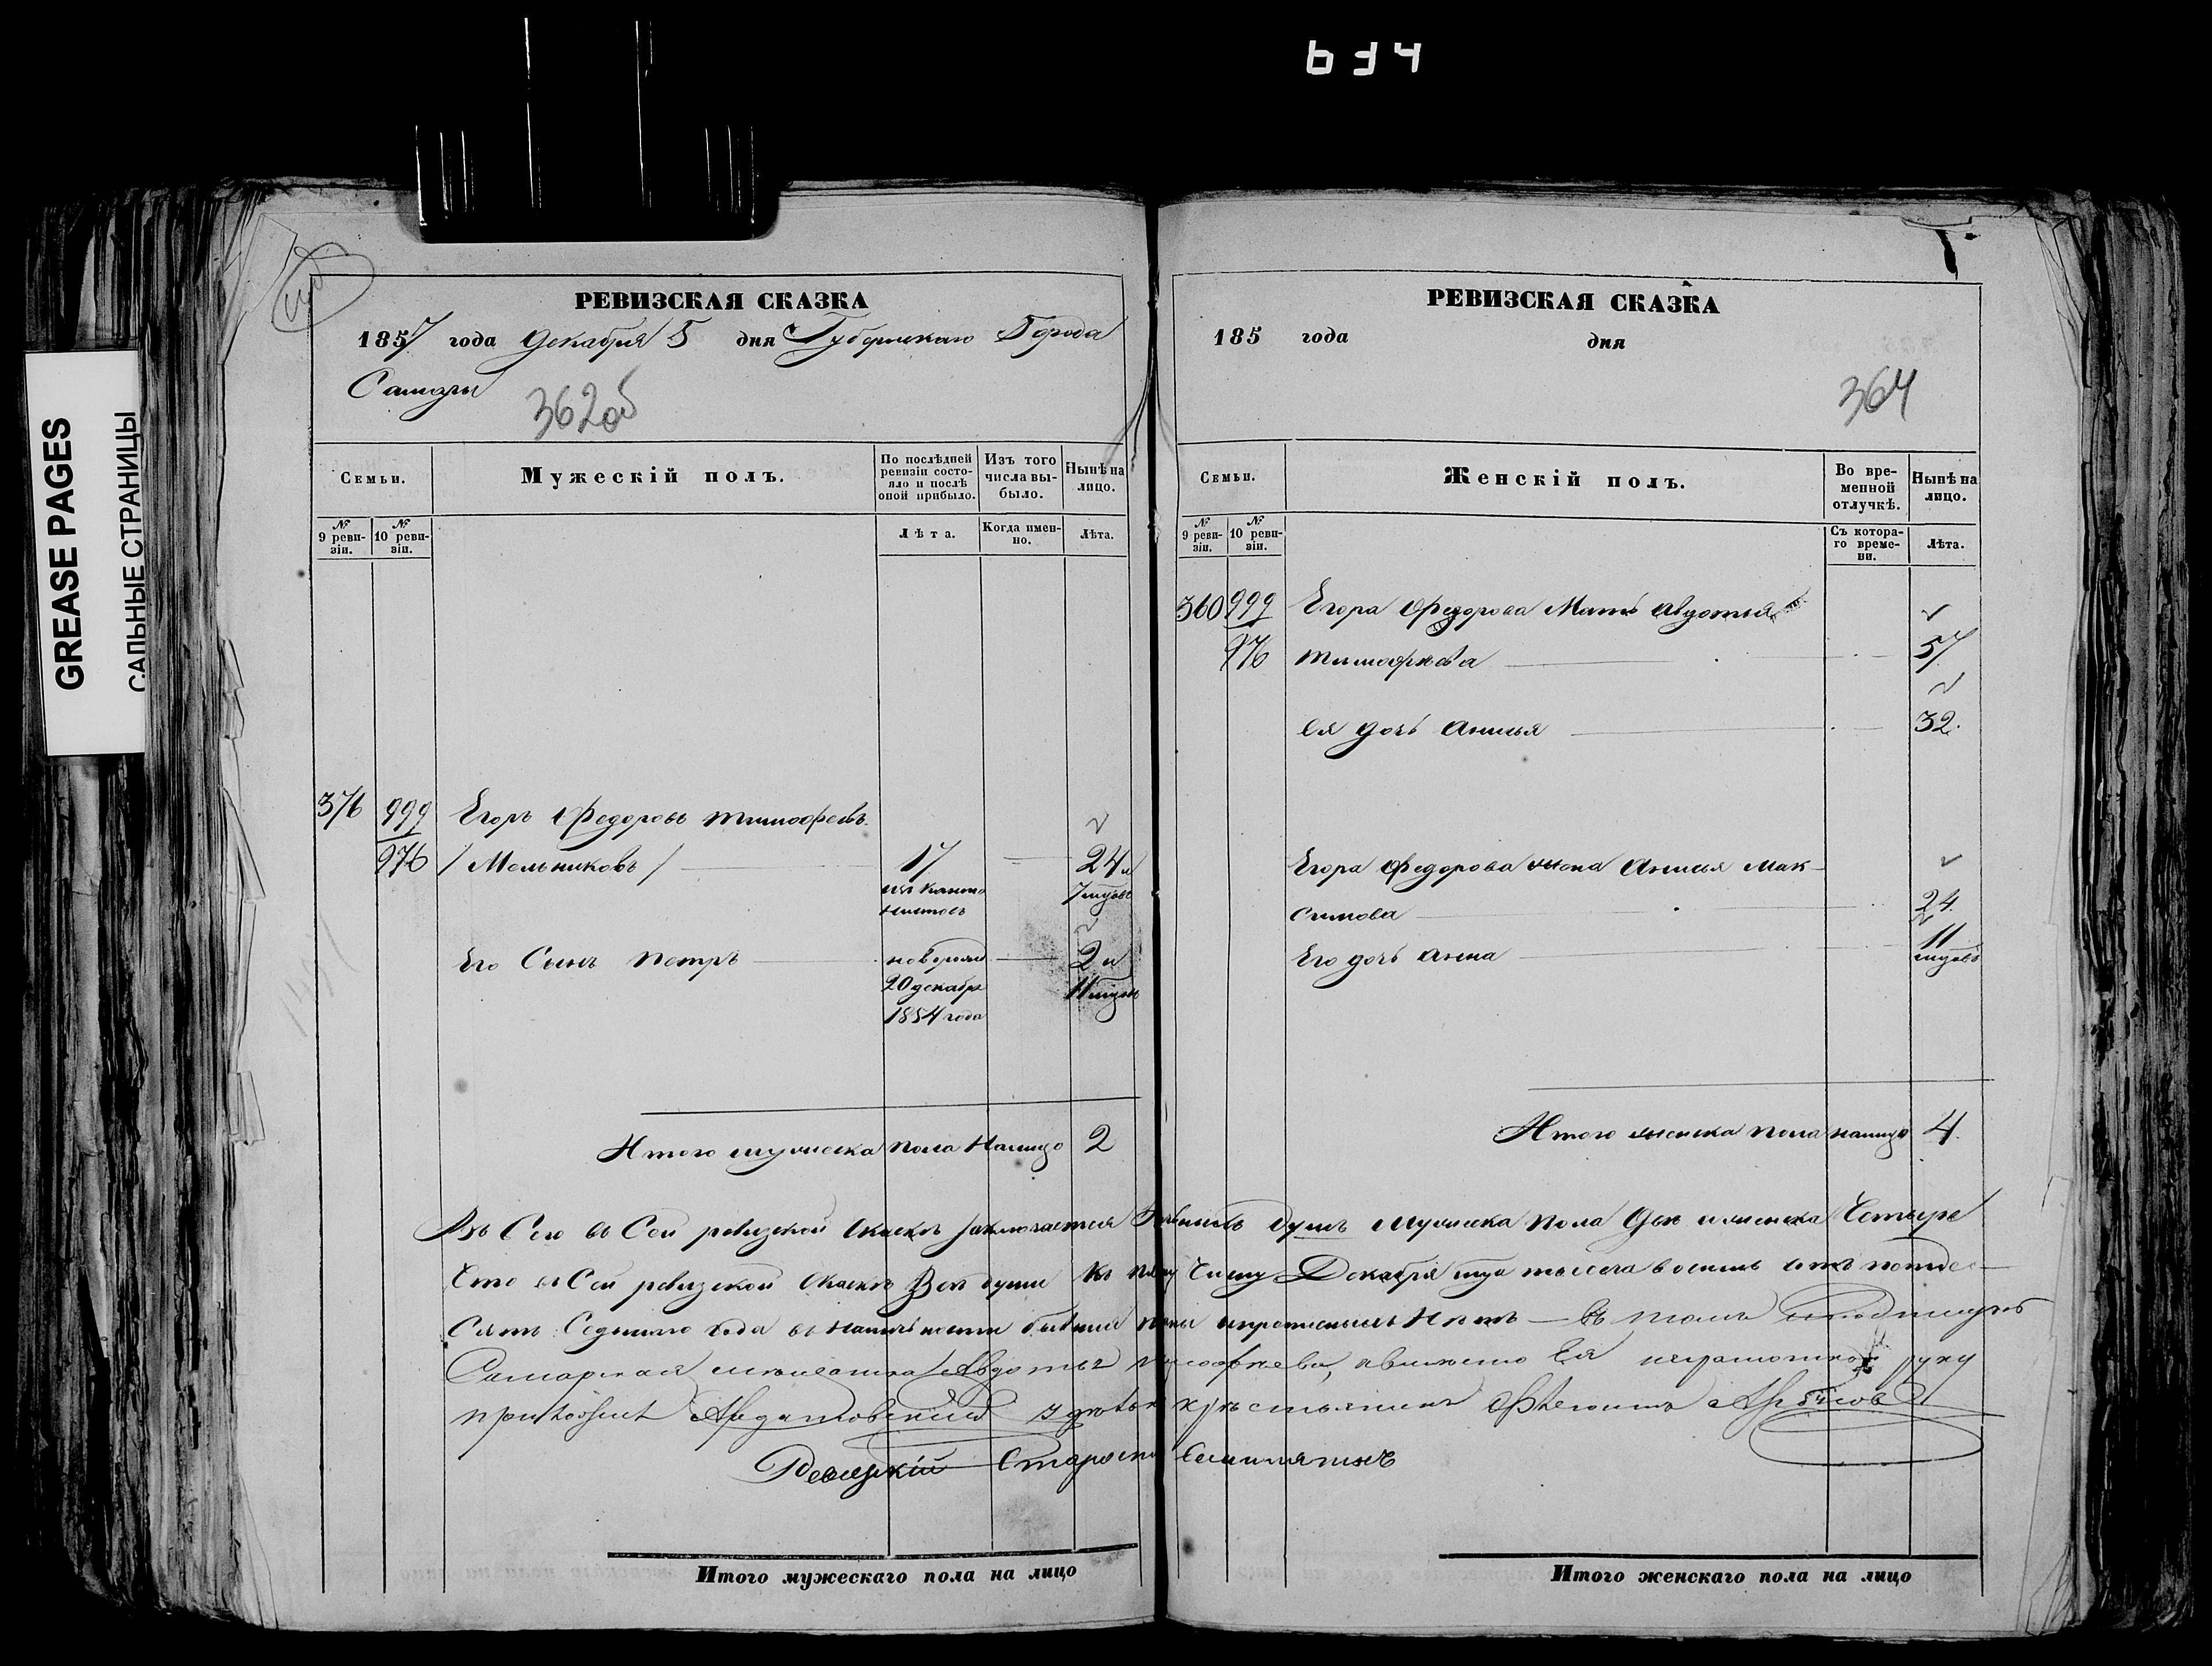 634
GREASE PAGES
САЛЬНЫЕ СТРАНИЦЫ
РЕВИЗСКАЯ СКАЗКА
1857 года Декабря 5 дня Губернскаго Города
Самары
362об
Семьи.
Мужескій полъ.
По послѣдней ревизіи состояло и послѣ оной прибыло.
Изъ того числа выбыло.
Нынѣ на лицо.
№ 9 ревизіи.
№ 10 ревизіи.
Лѣта.
Когда именно.
Лѣта.
376 999 Егоръ Федоровъ Тимофеевъ
976 /Мельниковъ/ 17 24 и
изъ кантонистовъ 7 мцовъ
Его Сынъ Петръ новорожд 2 и
20 декабр 11 мцов
1854 года
Итого мужеска пола налицо 2
РЕВИЗСКАЯ СКАЗКА
185 года дня
364
Семьи.
Женскій полъ.
Во временной отлучкѣ.
Нынѣ на лицо.
№ 9 ревизіи.
№ 10 ревизіи.
Съ котораго времени.
Лѣта.
360 999 Егора Федорова Мать Авдотья
976 Тимофѣева 57
ея дочь Анисья 32.
Егора Федорова жена Анисья Мак-
симова 24.
Его дочь Анна 11 мцовъ
Итого женска пола налицо 4.
Въ Сей ревизской Сказкѣ заключается душъ мужеска пола Двѣ и женска Четыре
Что въ Сей ревизской Сказкѣ Всѣ души къ Числу Декабря мца тысяча восемь сотъ пятде-
сятъ Седьмаго года въ наличности бывшія въ томъ
Самарская мещанка Авдотья Тимофѣева, а вместо Ея неграмотной руку
приложилъ крестьянинъ
Староста
Итого мужескаго пола на лицо
Итого женскаго пола на лицо